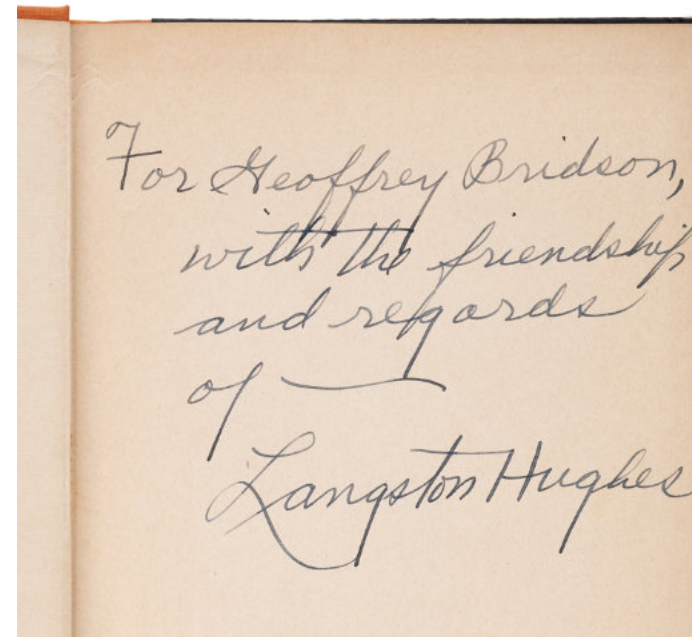 For Geoffrey Bridson,
with the friendship
and regards
of —
Langston Hughes